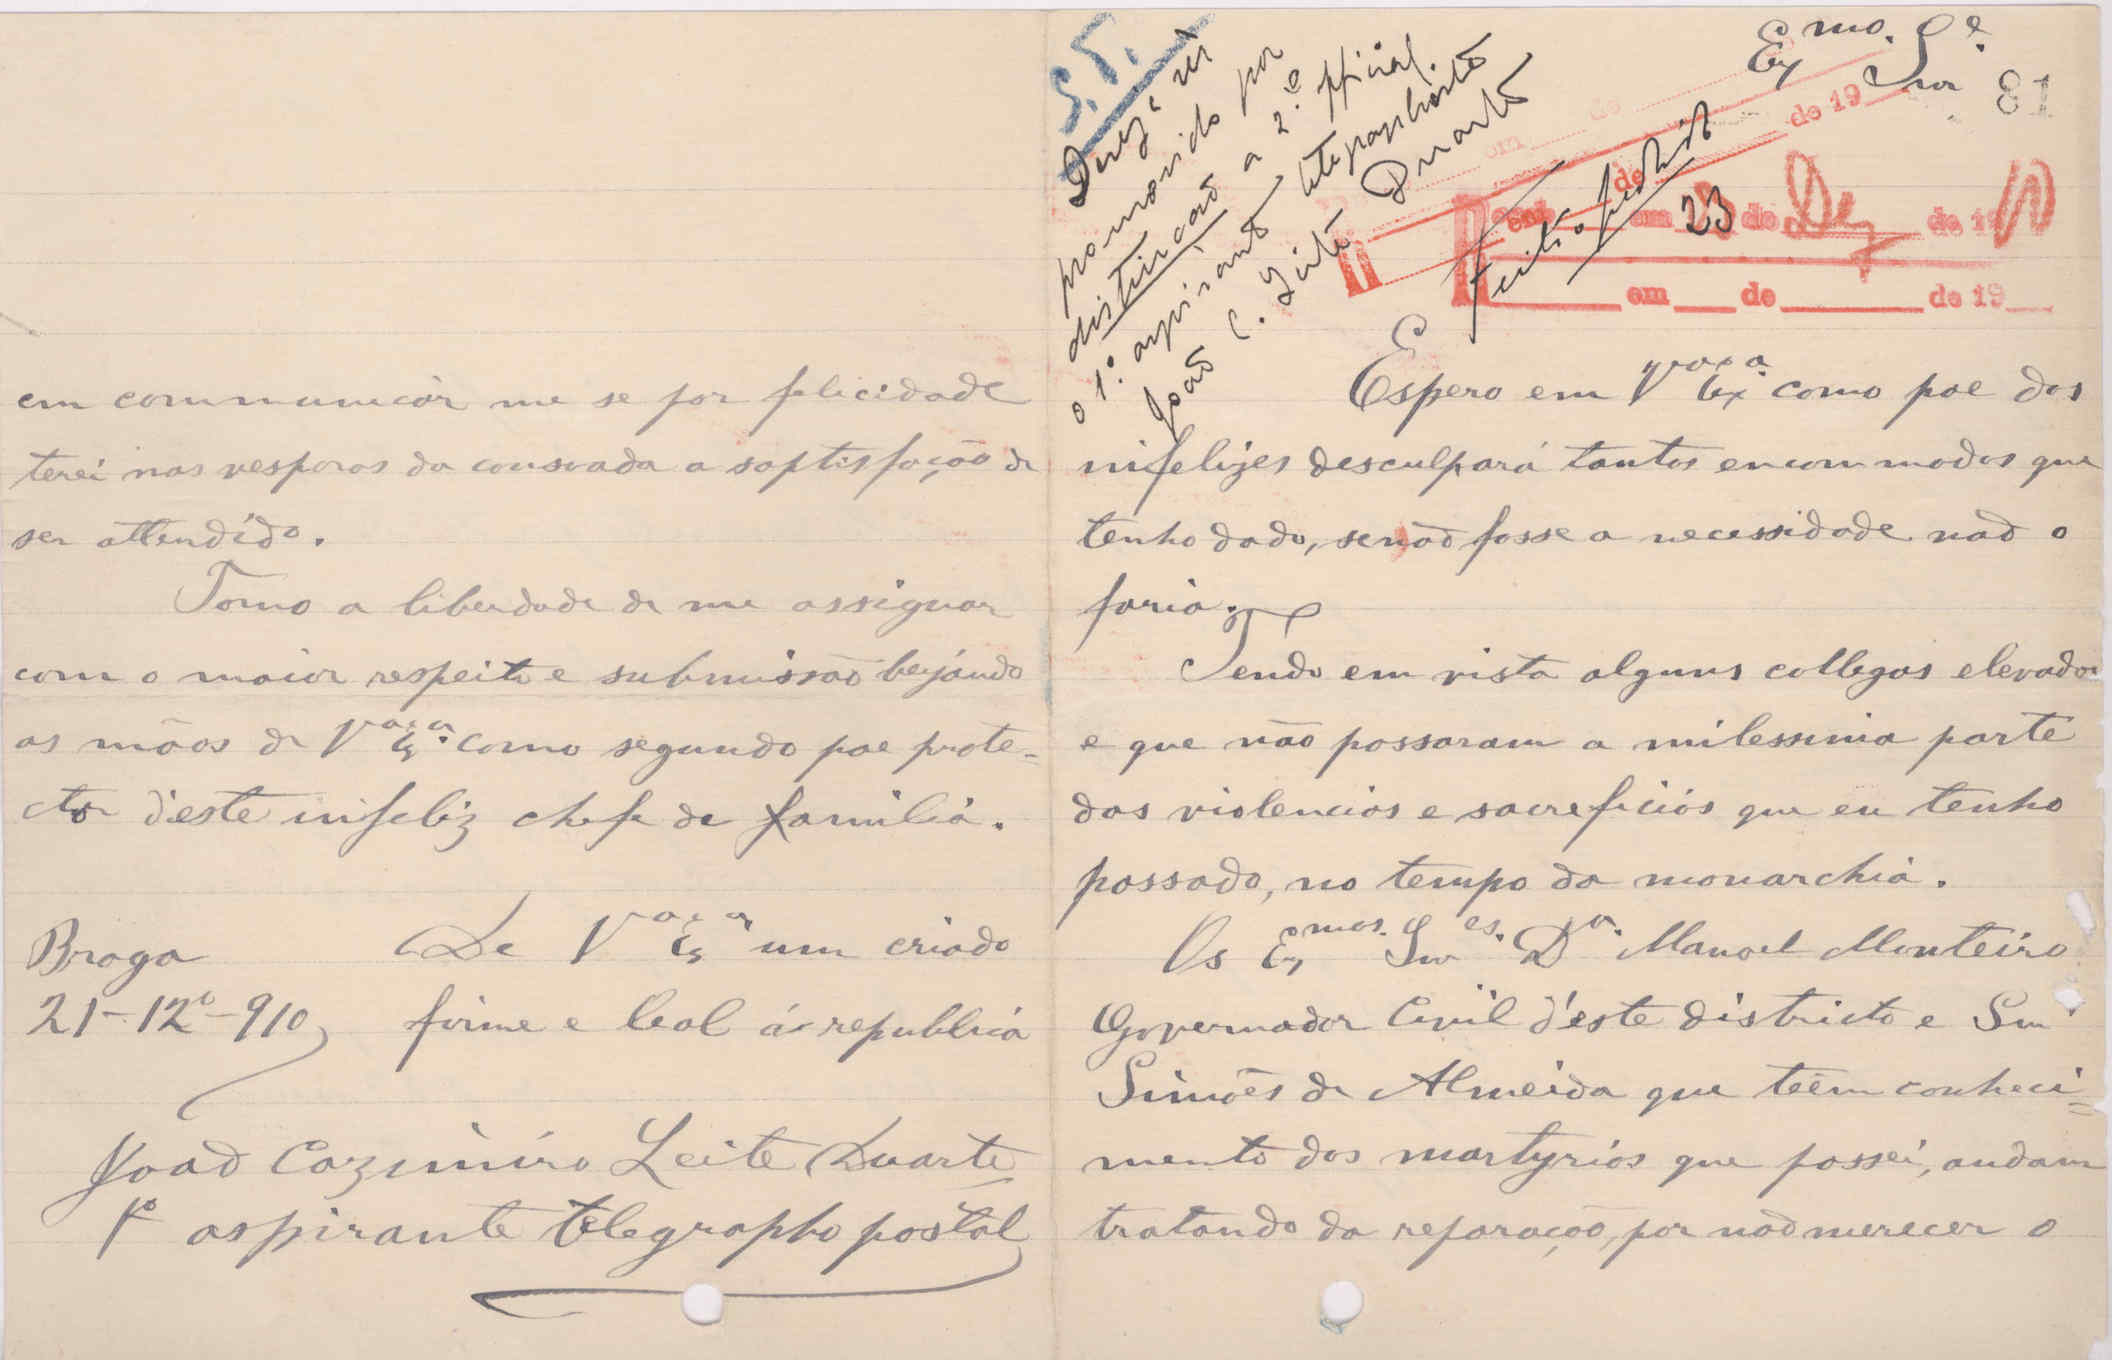 Ex.mo Sr.
81
S.T.
Dezª ser
promovido por
distincão a 2.º official
o 1º. aspirante telegraphista
João C. Leite Duarte
de 19
em de de 19
de
Receb em 23 de Dez de 1910
R em de de 19
Espero em Vª Exª como pae dos
infelizes desculpará tantos encommodos que
tenho dado, senão fosse a necessidade não o
faria.
Tendo em vista alguns collegas elevados
e que não passaram a milessima parte
das violencias e sacreficios que eu tenho
passado, no tempo da monarchia.
Os Ex.mos Snr.es Dr. Manoel Monteiro
Governador Civil d'este districto e Snr.
Simões de Almeida que têem conheci=
mento dos martyrios que passei, andam
tratando da reparação, por não merecer o
em communicár me se por felicidade
terei nas vesporas da consoada a saptisfação de
ser attendido.
Tomo a liberdade de me assignar
com o maior respeito e submissão beijando
as mãos de Vª Exª. como segundo pae prote=
ctor d'este infeliz chefe de familia.
De Vª Exª um criado
firme e leal á republica
Braga
21-12º-910
João Cazimiro Leite Duarte
1º aspirante telegrapho postal